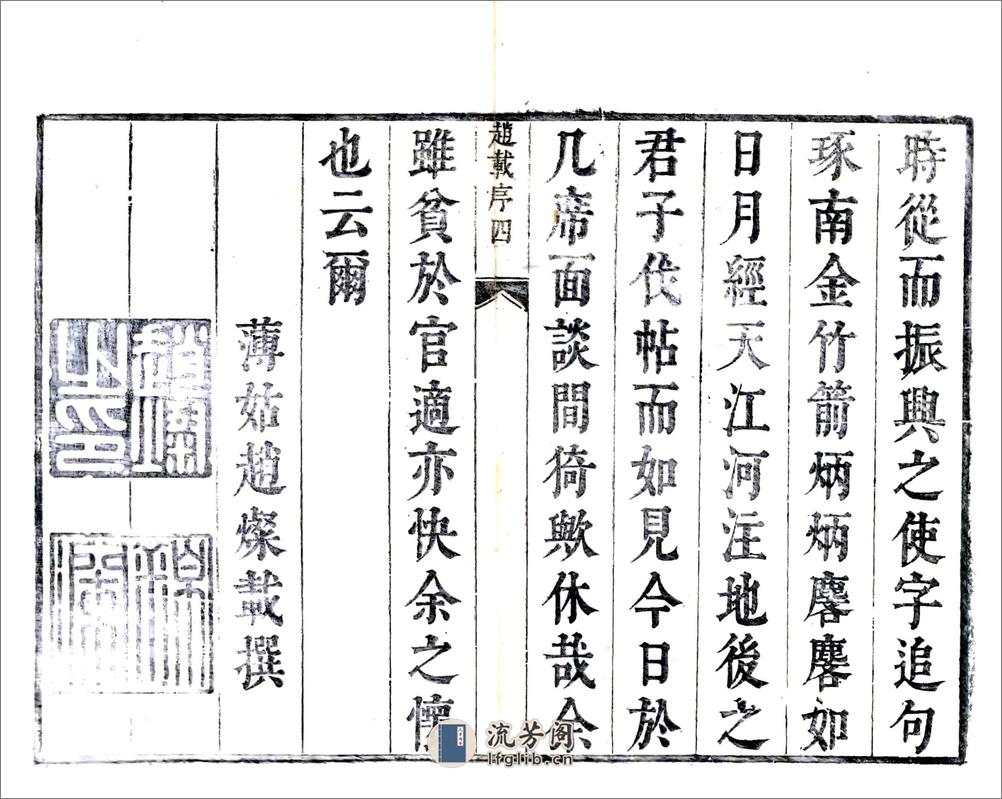 時從而振興之使字追句
琢南金竹箭炳炳麐麐如
日月經天江河注地後之
君子伐帖而如見今日於
几席面談間猗歟休哉余
趙載序四
雖貧於官適亦快余之懷
也云爾
薄姑趙燦載撰
流芳阁
lfglib.cn